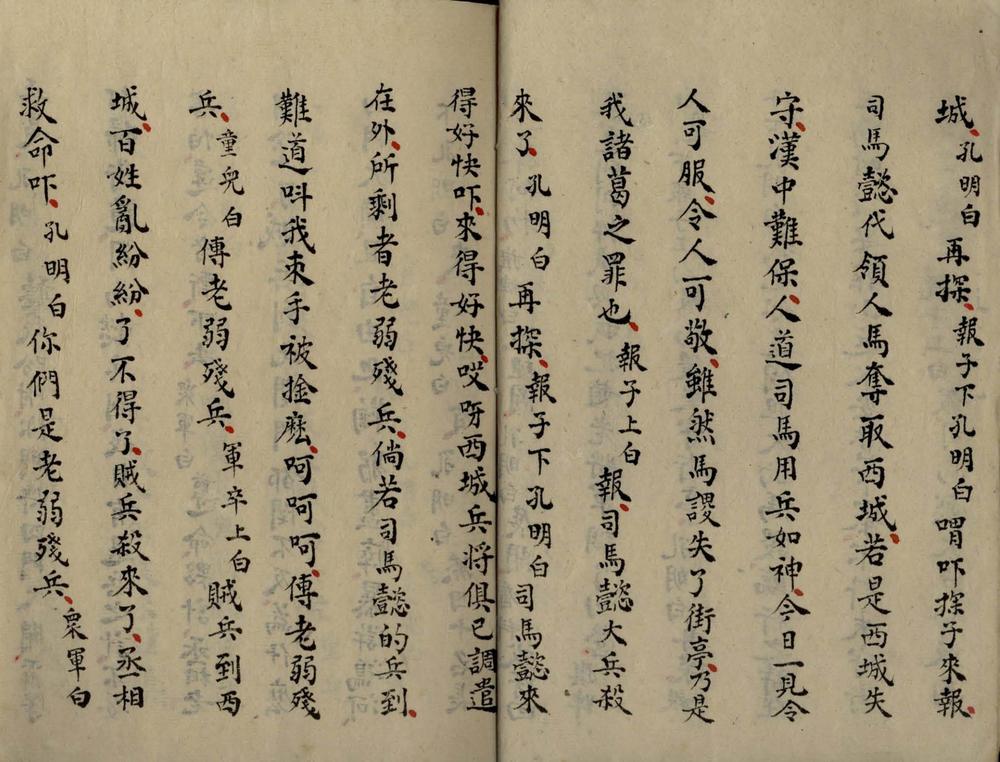 城、孔明白再探、報子下孔明白喟吓探子來報、
司馬懿代領人馬奪取西城、若是西城失
守、漢中難保、人道司馬用兵如神、今日一見令
人可服、令人可敬、雖然馬謖失了街亭、乃是
我諸葛之罪也、報子上白報、司馬懿大兵殺
來了、孔明白再探、報子下孔明白司馬懿來
得好快吓、來得好快、哎呀西城兵將俱已調遣
在外、所剩者老弱殘兵、倘若司馬懿的兵到、
難道呌我朿手被捡麽、呵呵呵、傳老弱殘
兵、童兒白傳老弱殘兵、軍卒上白賊兵到西
城、百姓亂紛紛、了不得了、賊兵殺來了、丞相
救命吓、孔明白你們是老弱殘兵、衆軍白